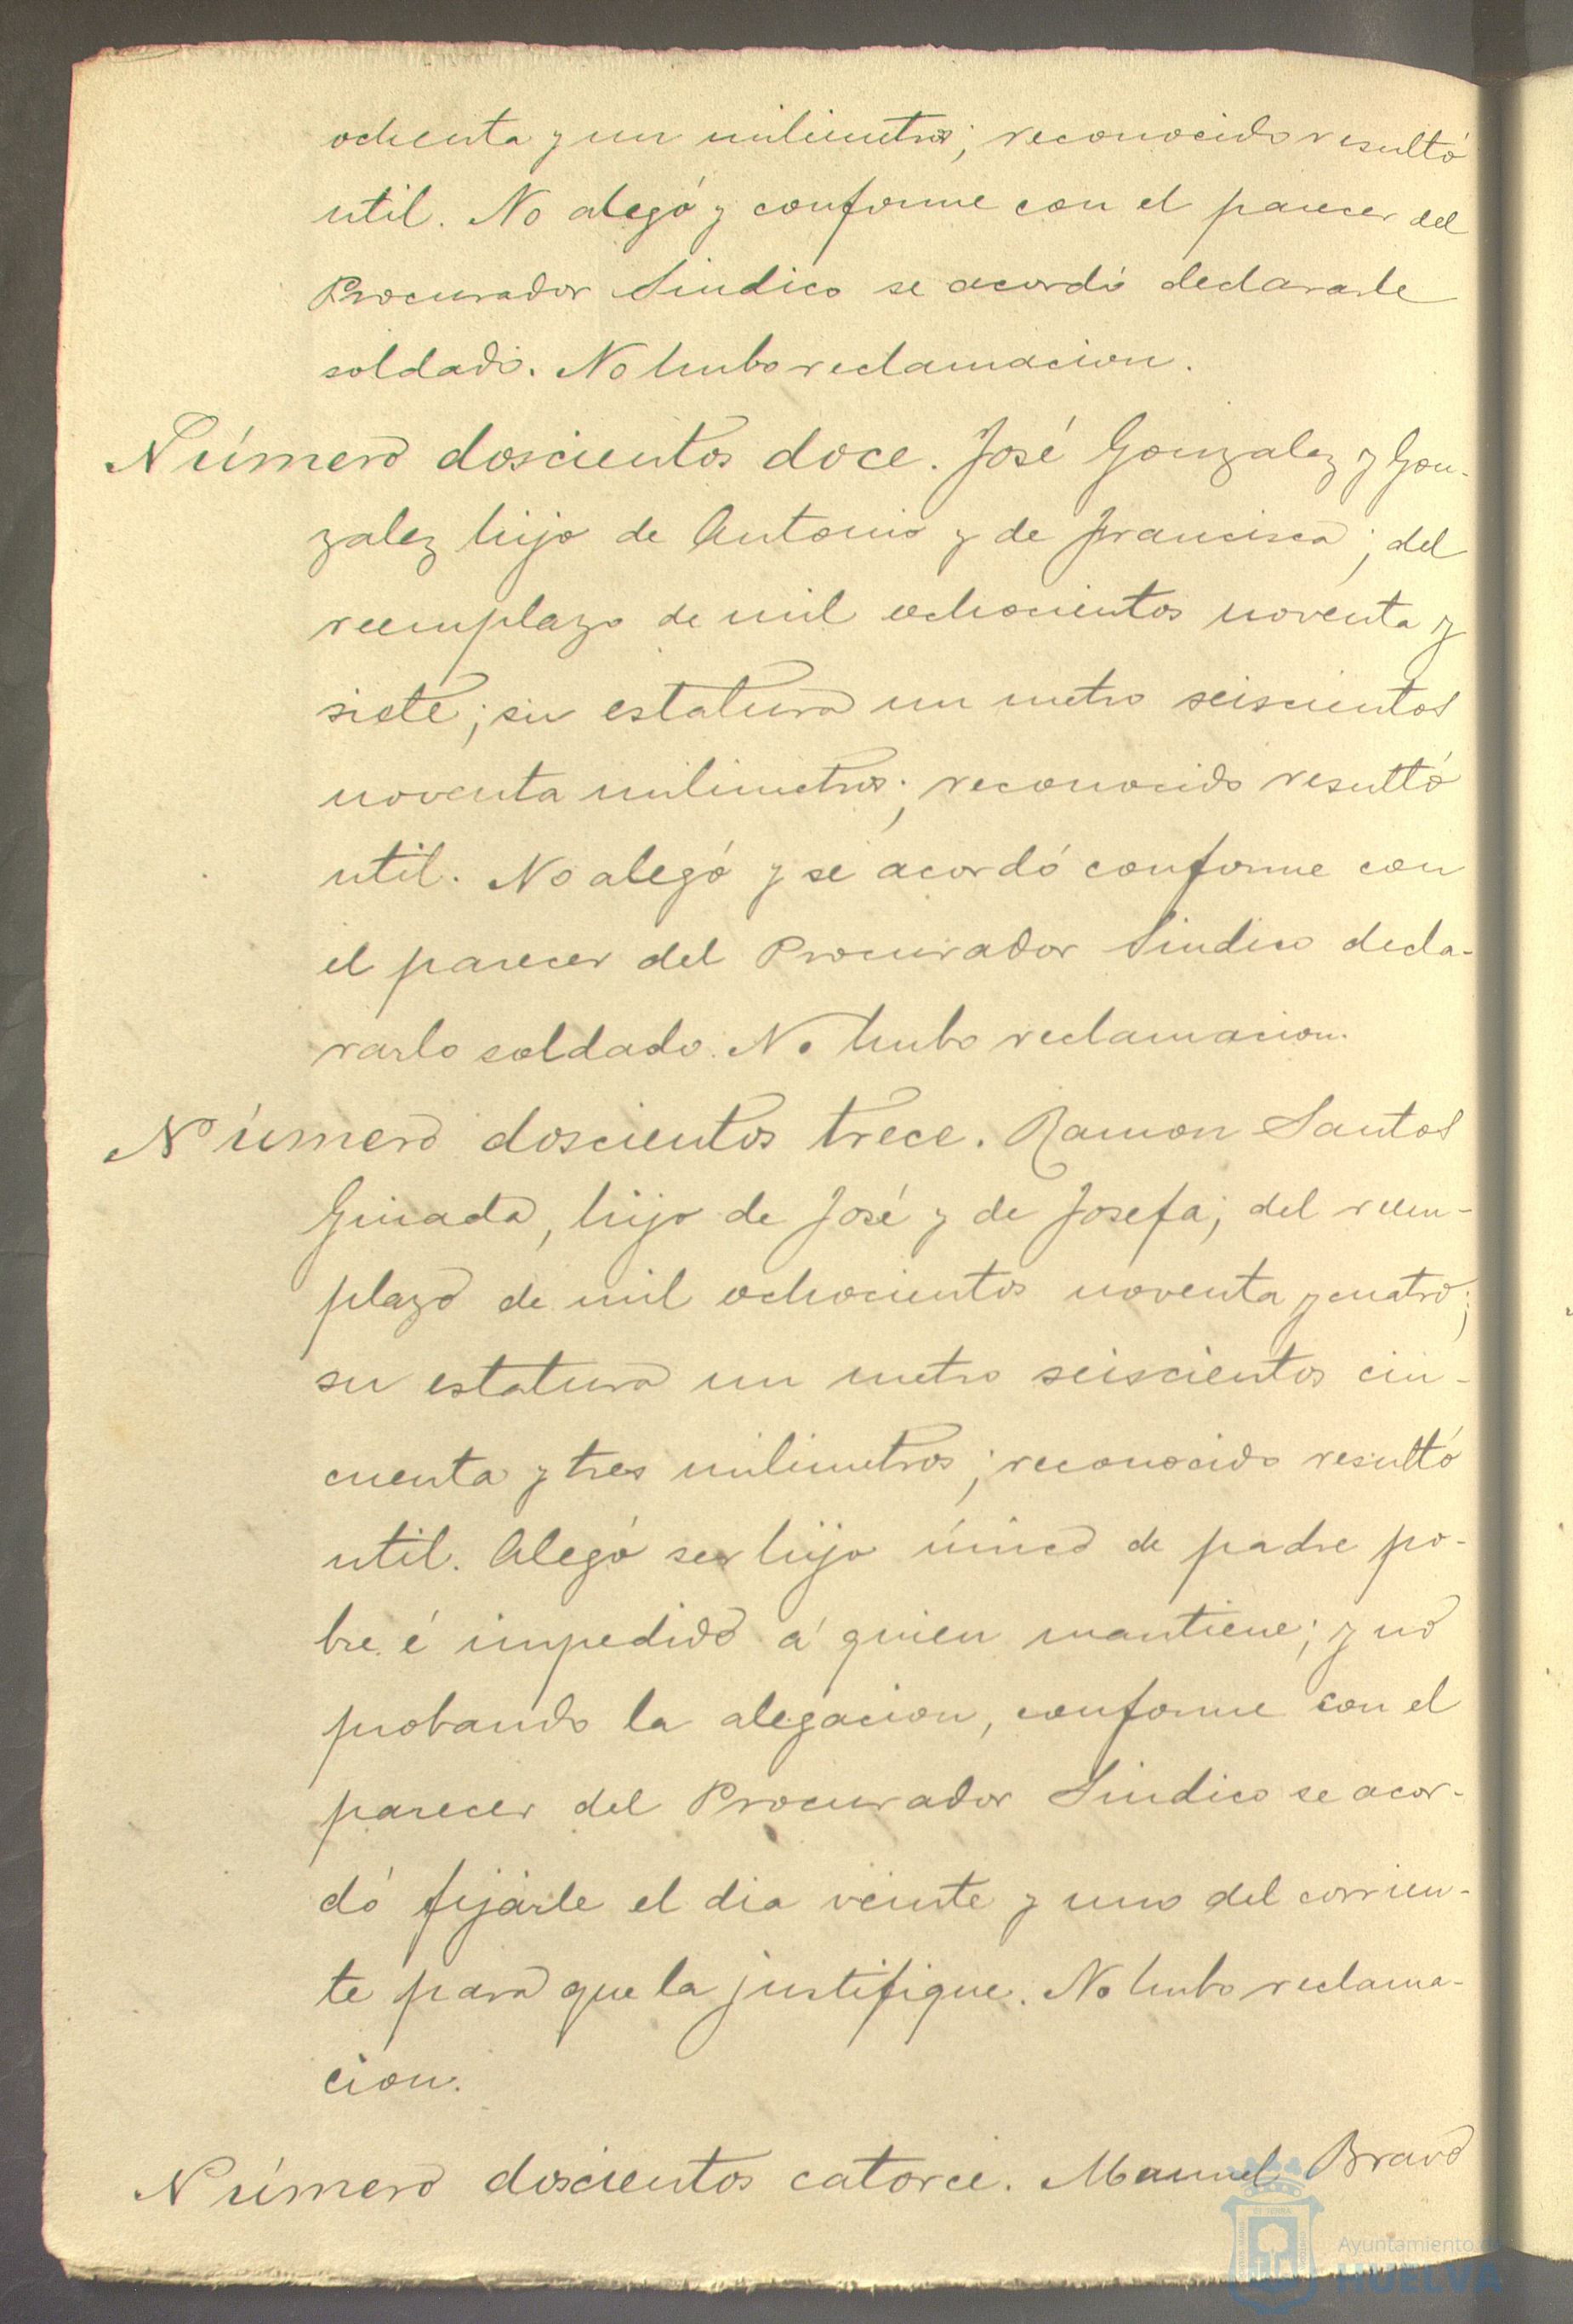 ochenta y un milimetros; reconocido resultó
util. No alegó y conforme con el parecer del
Procurador Sindico se acordó declararle
soldado. No hubo reclamacion.
Número doscientos doce. José Gonzalez y Gon-
zalez hijo de Antonio y de Francisca; del
reemplazo de mil ochocientos noventa y
siete; su estatura un metro seiscientos
noventa milimetros; reconocido resultó
util. No alegó y se acordó conforme con
el parecer del Procurador Sindico decla-
rarlo soldado. No hubo reclamacion.
Número doscientos trece. Ramon Santos
hijo de José y de Josefa; del reem-
plazo de mil ochocientos noventa y cuatro;
su estatura un metro seiscientos cin-
cuenta y tres milimetros; reconocido resultó
util. Alegó ser hijo único de padre po-
bre é impedido á quien mantiene; y no
probando la alegacion, conforme con el
parecer del Procurador Sindico se acor-
dó fijarle el dia veinte y uno del corrien-
te para que la justifique. No hubo reclama-
cion.
Número doscientos catorce. Manuel Bravo
Ayuntamiento de
HUELVA